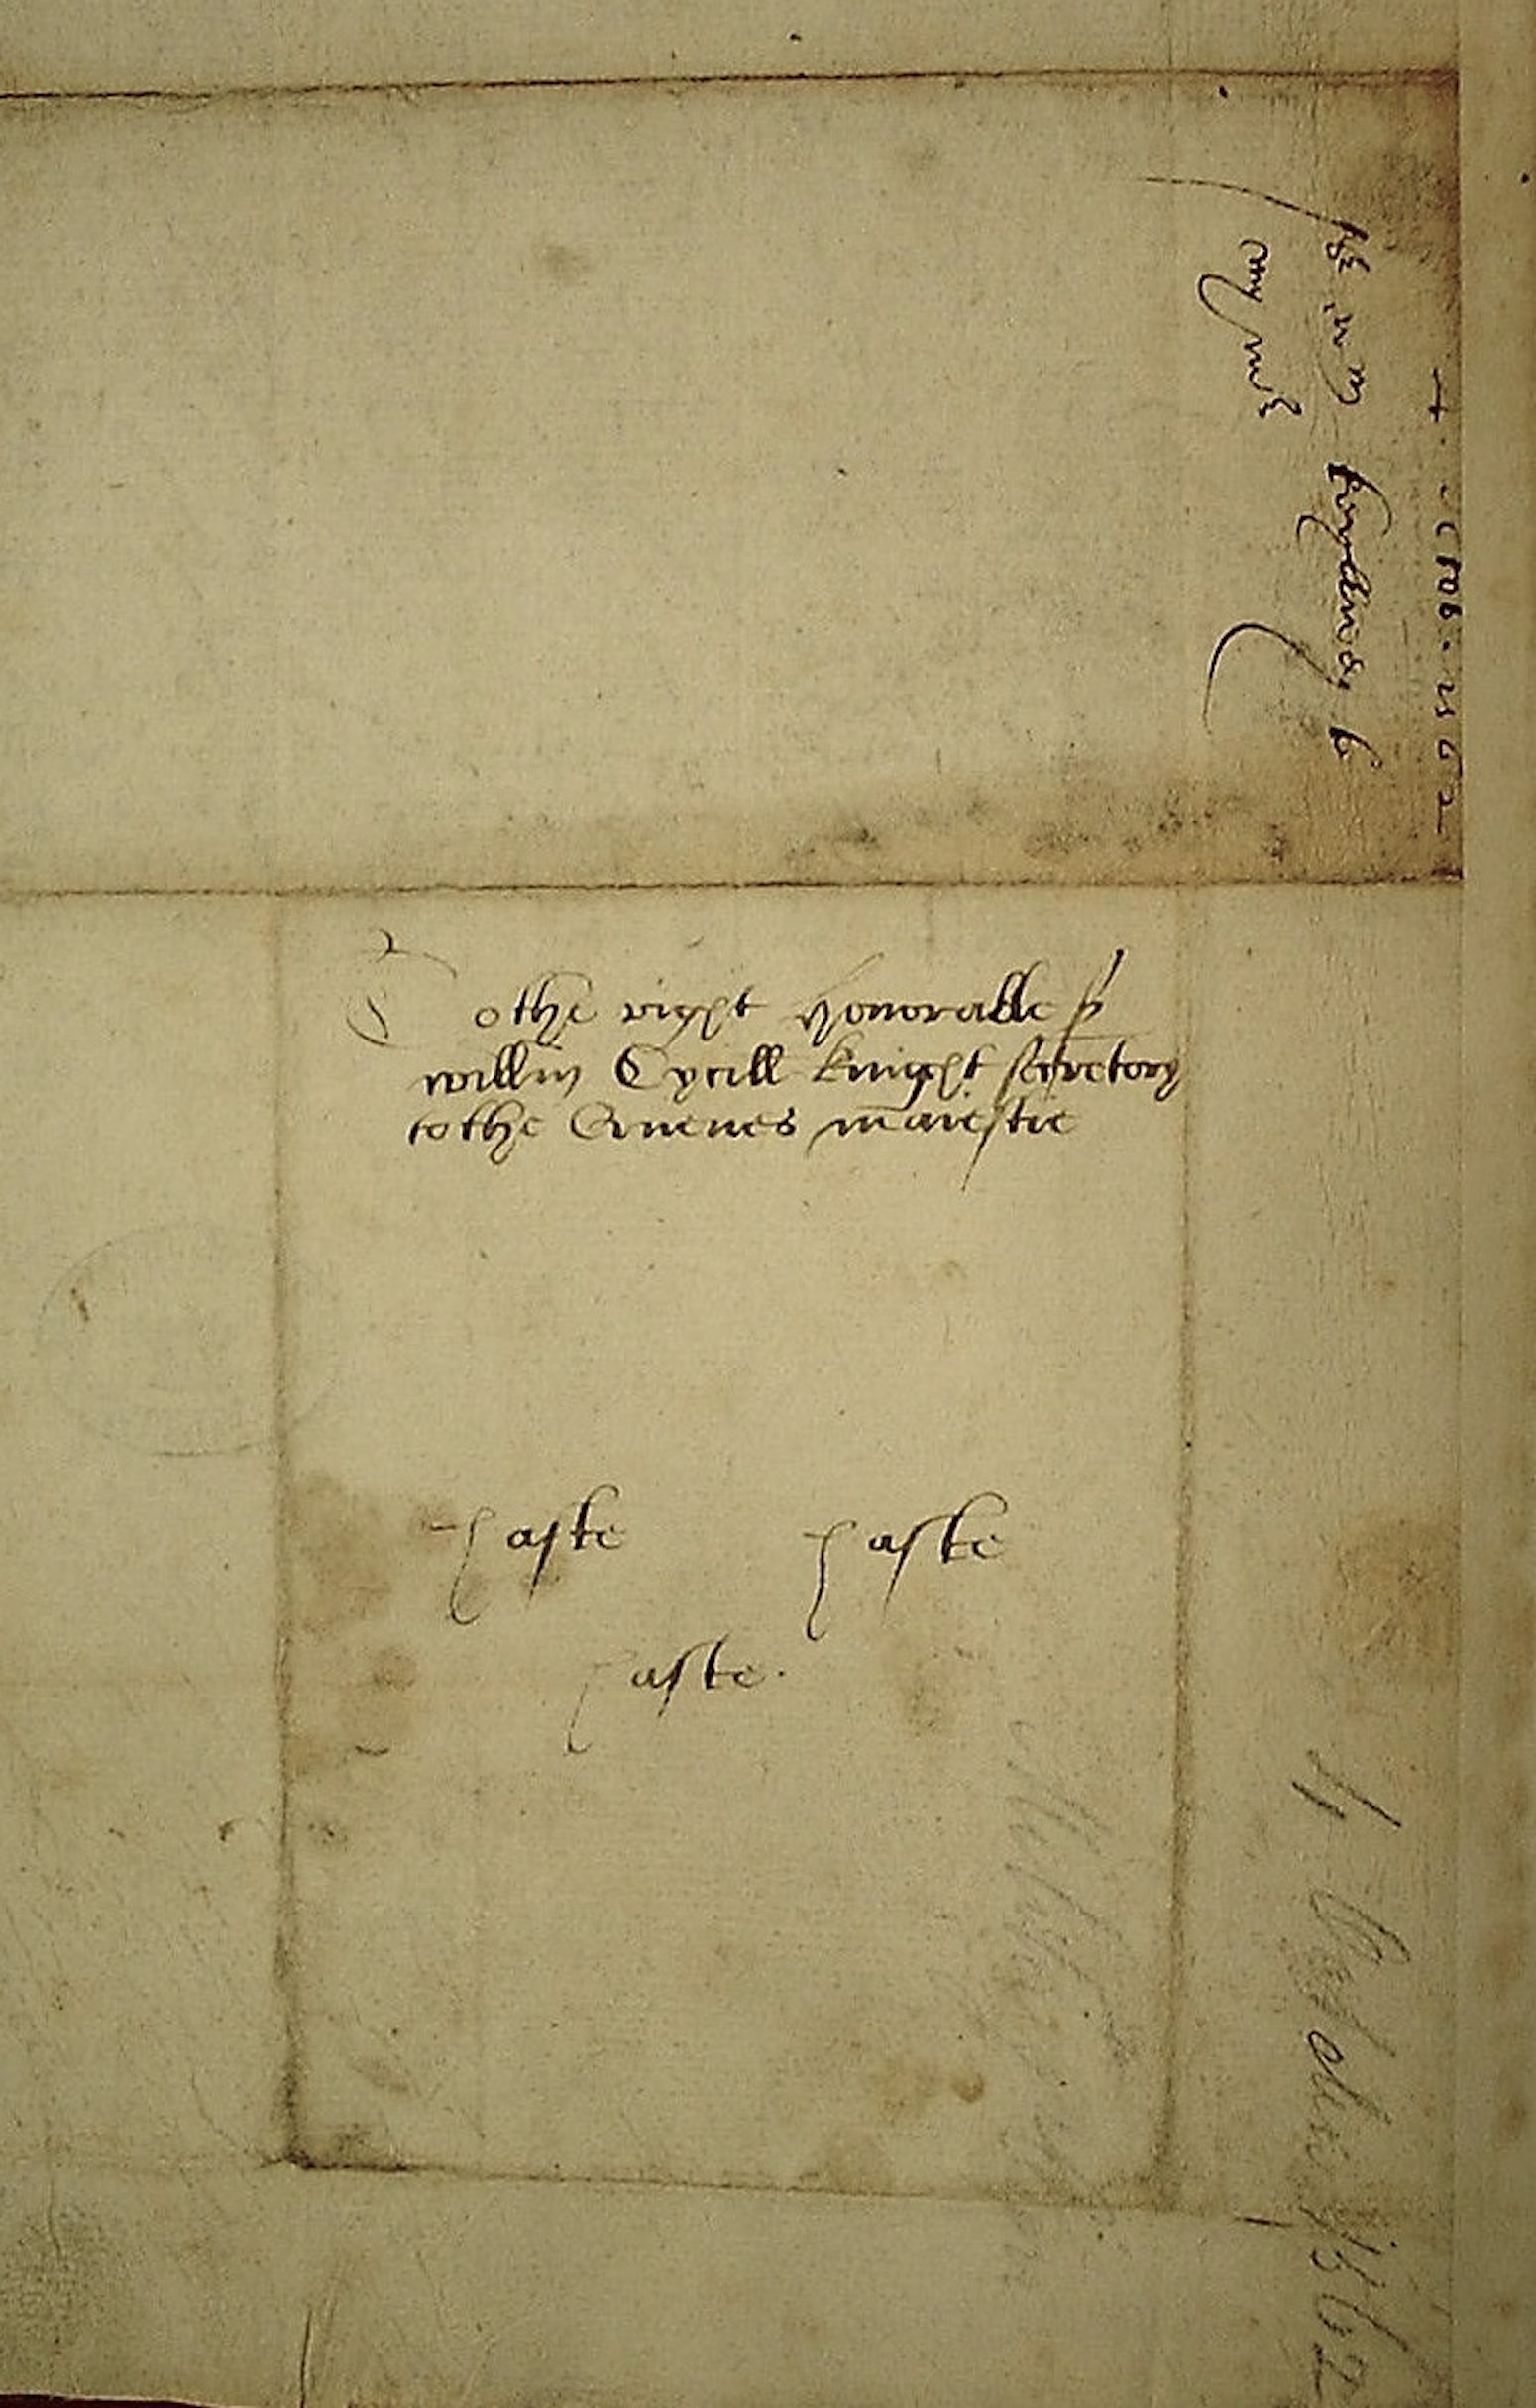 To the right honorable Sr
willm Cycill knight secretory
to the Quenes maiestie
haste haste
haste.
4 octobr 1562
my mr
4 October 1562